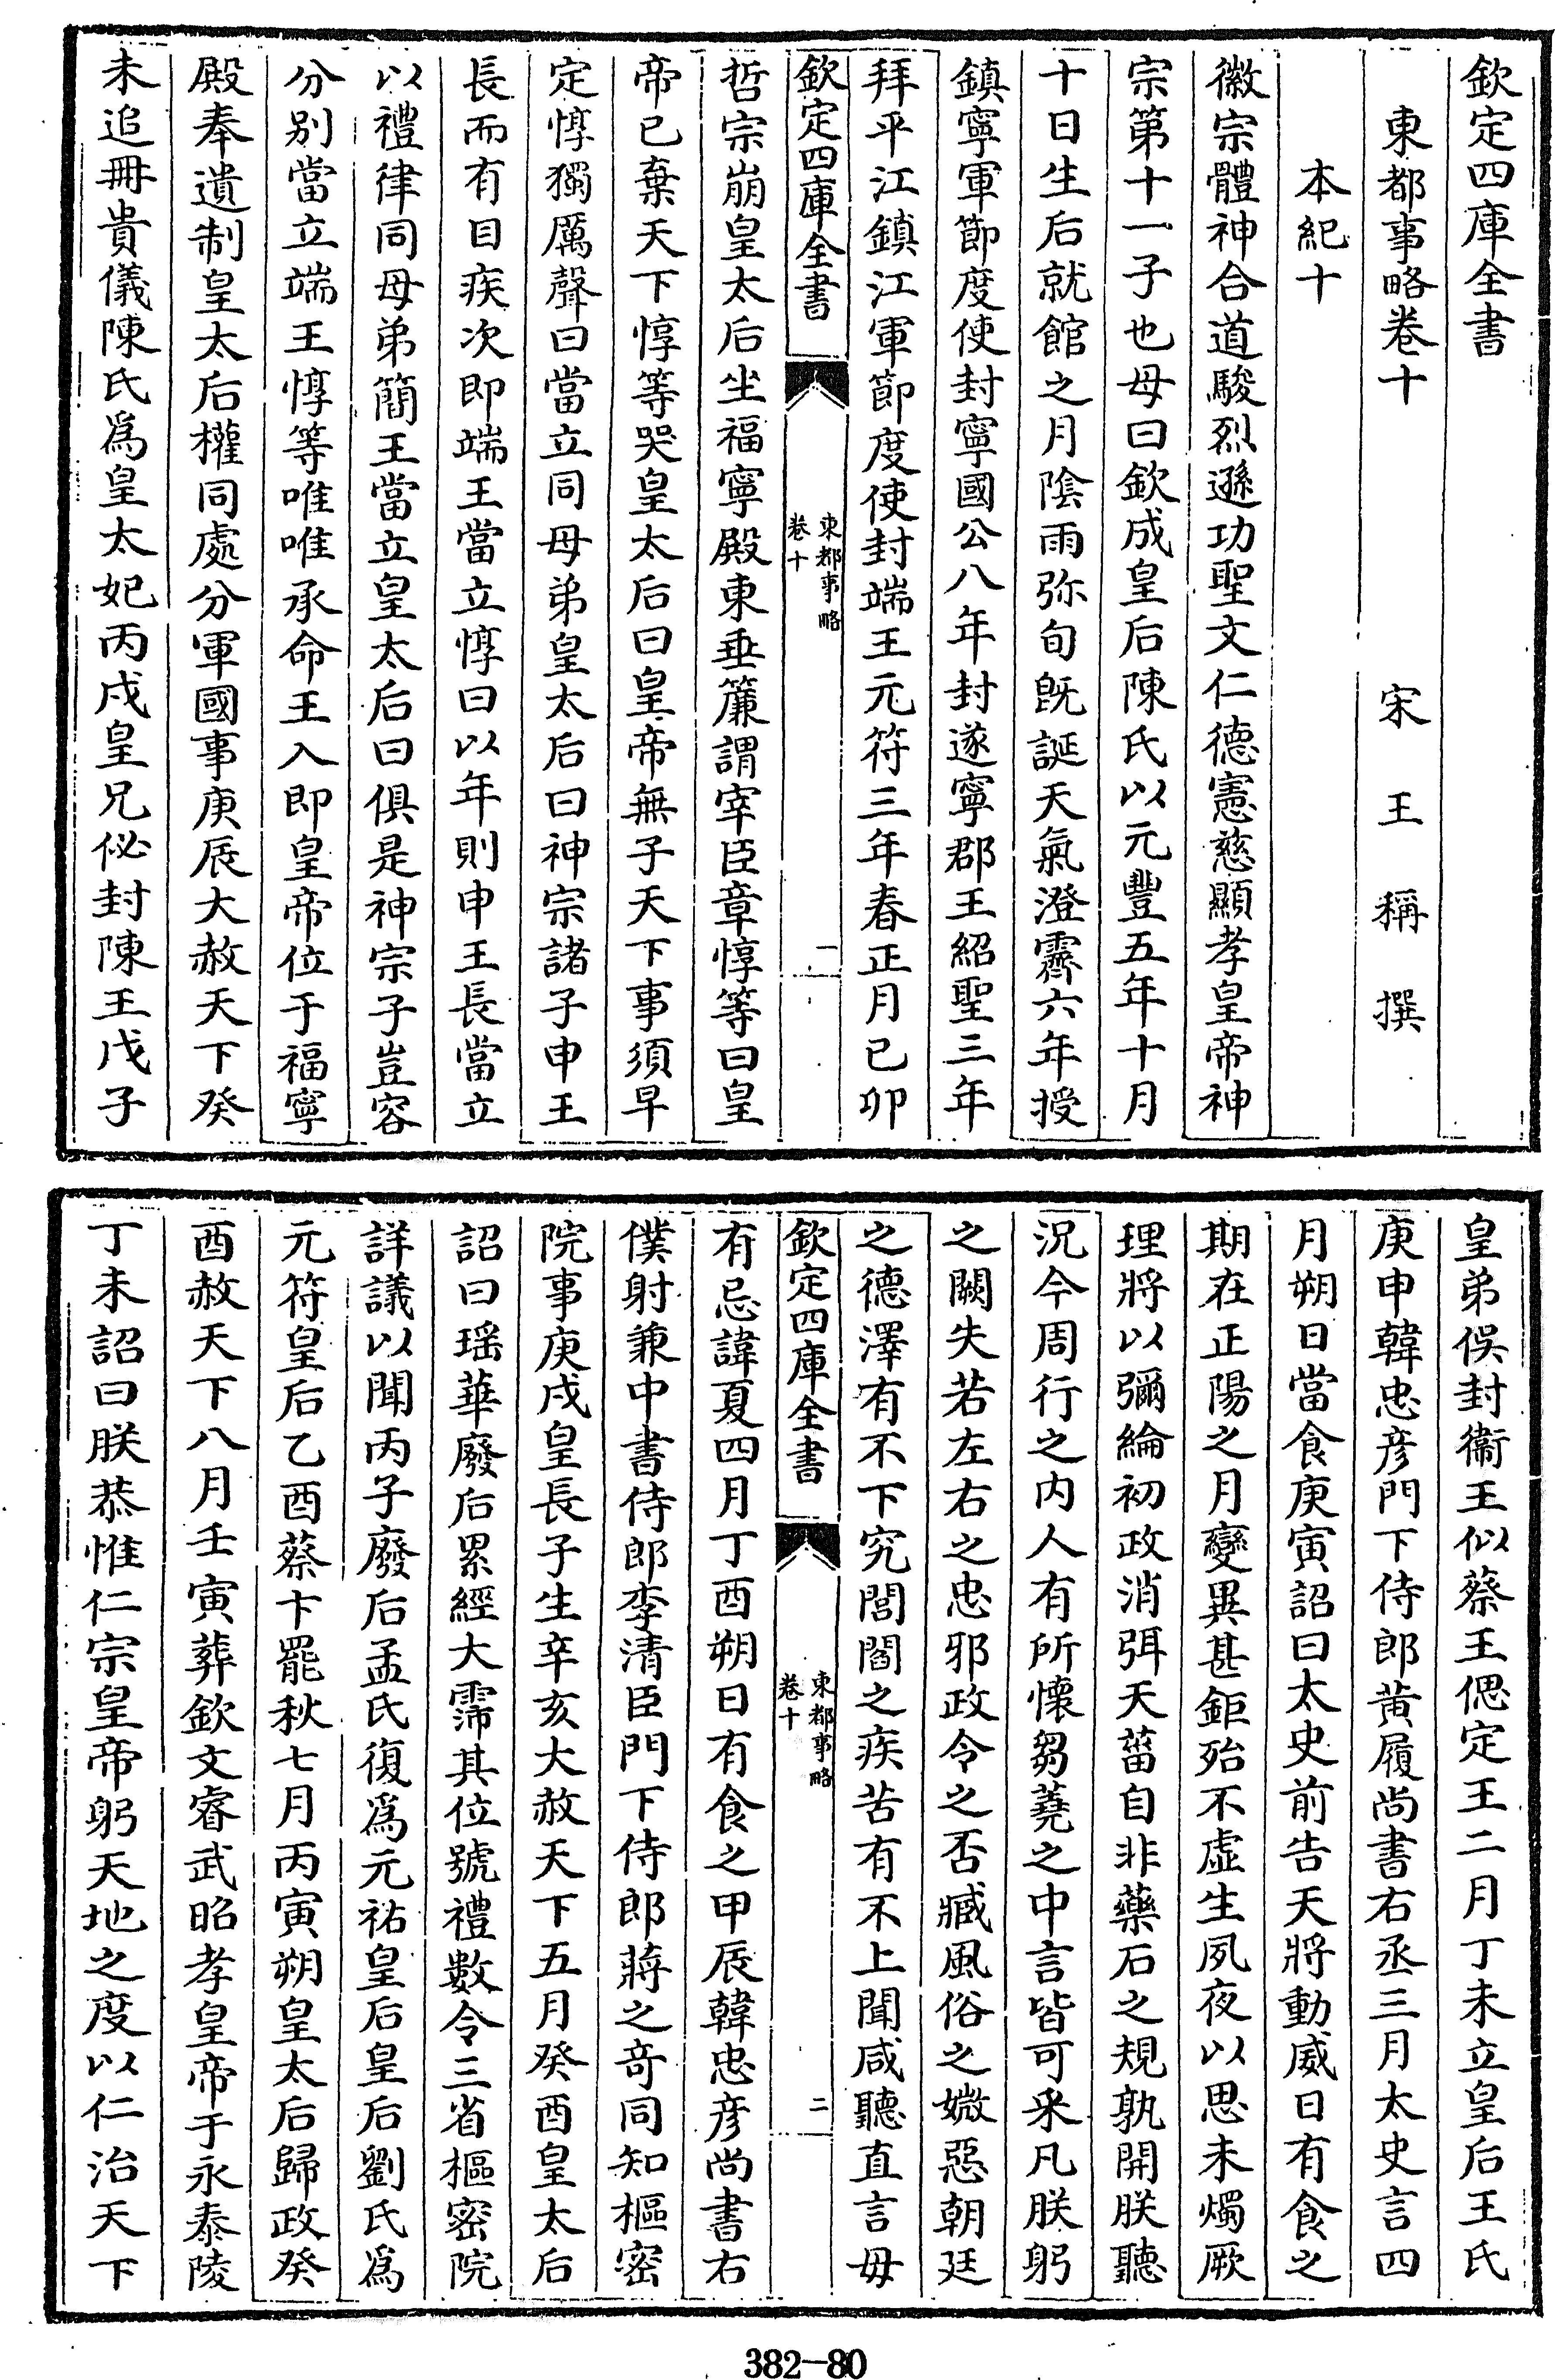 欽定四庫全書
東都事略卷十
宋王稱撰
本紀十
徽宗體神合道駿烈遜功聖文仁德憲慈顯孝皇帝神
宗第十一子也母曰欽成皇后陳氏以元豐五年十月
十日生后就館之月陰雨弥旬既誕天氣澄霽六年授
鎮寧軍節度使封寧國公八年封遂寧郡王紹聖三年
拜平江鎮江軍節度使封端王元符三年春正月己卯
欽定四庫全書
東都事略
卷十
一
哲宗崩皇太后坐福寧殿東垂簾謂宰臣章惇等曰皇
帝已棄天下惇等哭皇太后曰皇帝無子天下事須早
定惇獨厲聲曰當立同母弟皇太后曰神宗諸子申王
長而有目疾次即端王當立惇曰以年則申王長當立
以禮律同母弟簡王當立皇太后曰俱是神宗子豈容
分別當立端王惇等唯唯承命王入即皇帝位于福寧
殿奉遺制皇太后權同處分軍國事庚辰大赦天下癸
未追冊貴儀陳氏為皇太妃丙戌皇兄佖封陳王戊子
皇弟俁封衞王似蔡王偲定王二月丁未立皇后王氏
庚申韓忠彥門下侍郎黃履尚書右丞三月太史言四
月朔日當食庚寅詔曰太史前告天將動威日有食之
期在正陽之月變異甚鉅殆不虛生夙夜以思未燭厥
理將以彌綸初政消弭天菑自非藥石之規孰開朕聽
況今周行之內人有所懷芻蕘之中言皆可采凡朕躬
之闕失若左右之忠邪政令之否臧風俗之媺惡朝廷
之德澤有不下究閭閻之疾苦有不上聞咸聽直言毋
欽定四庫全書
東都事略
卷十
二
有忌諱夏四月丁酉朔日有食之甲辰韓忠彥尚書右
僕射兼中書侍郎李清臣門下侍郎蔣之奇同知樞密
院事庚戌皇長子生辛亥大赦天下五月癸酉皇太后
詔曰瑶華廢后累經大霈其位號禮數令三省樞密院
詳議以聞丙子廢后孟氏復為元祐皇后皇后劉氏為
元符皇后乙酉蔡卞罷秋七月丙寅朔皇太后歸政癸
酉赦天下八月壬寅葬欽文睿武昭孝皇帝于永泰陵
丁未詔曰朕恭惟仁宗皇帝躬天地之度以仁治天下
382-80